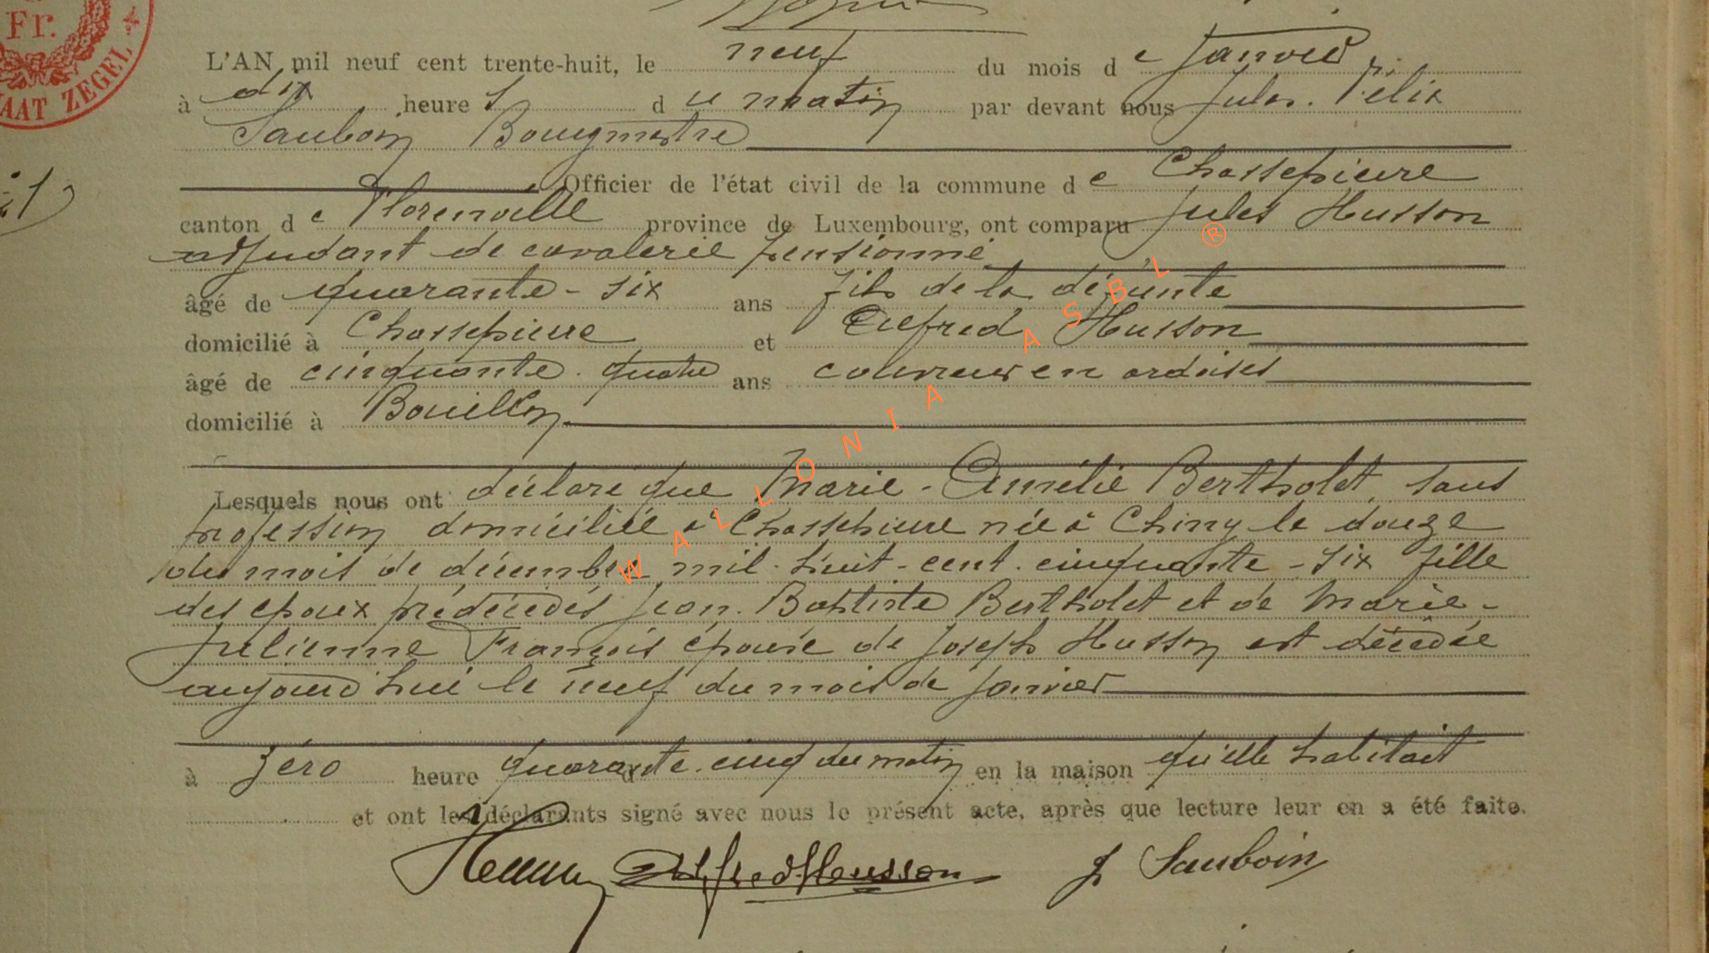 Fr.
AAT ZEGEL
L'AN mil neuf cent trente-huit, le neuf du mois de Janvier
à dix heures du matin par devant nous Jules Félix
Sauboin Bourgmestre
Officier de l'état civil de la commune de Chassepierre
canton de Florenville province de Luxembourg, ont comparu Jules Husson
adjudant de cavalerie pensionné
âgé de quarante-six ans fils de la défunte
domicilié à Chassepierre et Alfred Husson
âgé de cinquante-quatre ans couvreur en ardoises
domicilié à Bouillon
Lesquels nous ont déclaré que Marie-Amélie Bertholet, sans
profession domiciliée à Chassepierre née à Chiny le douze
du mois de décembre mil-huit-cent-cinquante-six fille
des époux prédécédés Jean-Baptiste Bertholet et de Marie-
Julienne François épouse de Joseph Husson est décédée
aujourd'hui le neuf du mois de janvier
à zéro heure quarante-cinq du matin en la maison qu'elle habitait
et ont les déclarants signé avec nous le présent acte, après que lecture leur en a été faite.
Alfred Husson J Sauboin
WALLONIA ASBL ®